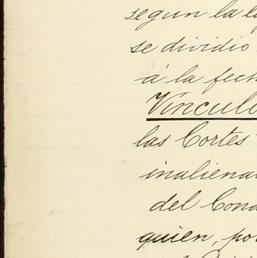 segun la le
se dividio
á la fech
Vinculo
las Cortes
inaliena
del Cond
quien, po